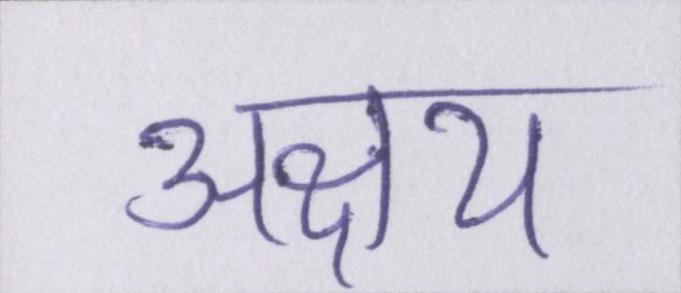 अक्षय